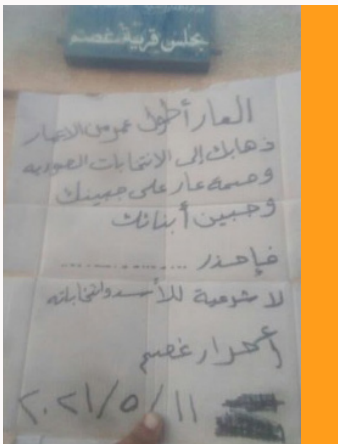 مجلس قرية غصم
العار أطول عمر من الاعمار
ذهابك إلى الانتخابات الصوريه
وصمه عار على جبينك
وجبين أبنائك
فإحذر ..............
لا شرعية للأسد وانتخاباته
أحرار غصم
٢٠٢١/٥/١١